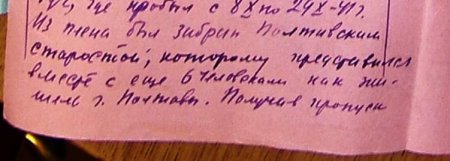 где пробыл с 8 X по 24 X - 41 г.
Из плена был забран Полтавским
старостой, которому представился
вместе с еще 6 человеками как жи-
тель г. Полтавы. Получив пропуск